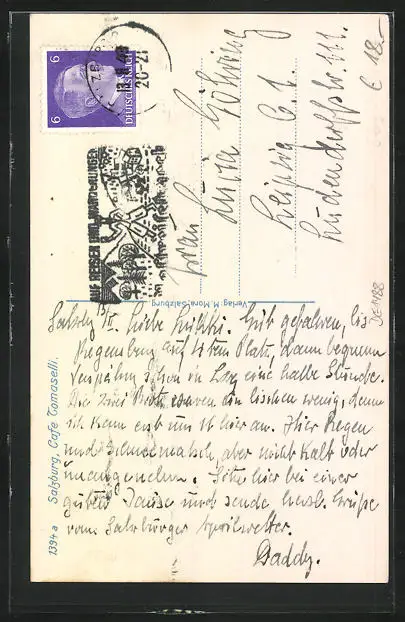 6
6
DEUTSCHES REICH
20-21
AUF REISEN UND WANDERUNGEN
€ 18.-
Frau
Luzia
Leipzig C.1.
Ludendorffstr. 111.
Verlag: M. Mora, Salzburg
DE1488
1394 a Salzburg, Cafe Tomaselli.
Salzbg Liebe Gut gefahren, bis
Regensburg auf Platz, dann bequem
Verspätg schon in eine halbe Stunde.
Die zwei Brote waren ein bischen wenig, denn
ich kam erst um hier an. Hier Regen
und Schneematsch, aber nicht kalt oder
unangenehm. Sitze hier bei einer
guten Jause und sende herzl. Grüße
vom Salzburger Aprilwetter.
Daddy.